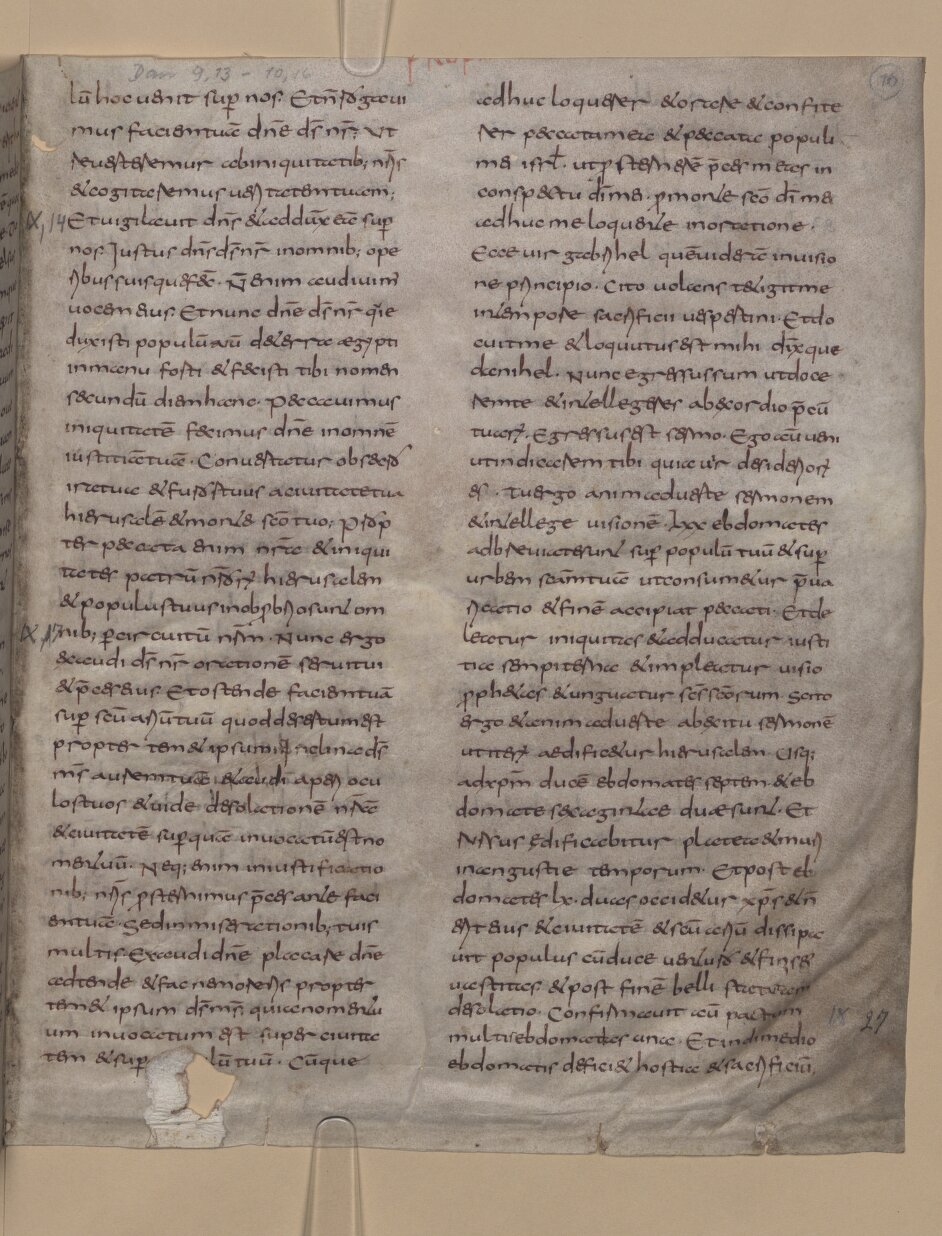 Dan 9,13 – 10,16
PROP
lū hoc uenit sup nos. Et nn̄ rogaui
mus faciem tuā dn̄e ds̄ nr̄; ut
reuerteremur ab iniquitatib; nr̄is
& cogitaremus ueritatem tuam;
IX, 14 Et uigilauit dn̄s & adduxit eā sup
nos Iustus dn̄s ds̄ nr̄ in omnib; ope
ribus suis que fec̄. N̄ enim audiuim̄
uocem eius Et nunc dn̄e ds̄ nr̄ qui e
duxisti populū tuū de terra aegypti
in manu forti & fecisti tibi nomen
secundū diem hanc. Peccauimus
iniquitatē fecimus dn̄e in omnē
iustitiā tuā. Conuertatur obsecro
ira tua & furor tuus a ciuitate tua
hierusalē & monte scō tuo; Prop
ter peccata enim nr̄a & iniqui
tates patrū nr̄orū hierusalem
& populus tuus in obprobrio sunt om
IX, 17 nib; per circuitū nr̄m. Nunc ergo
exaudi ds̄ nr̄ orationē serui tui
& p̄ces eius Et ostende faciem tuā
sup scū ariū tuū quod desertum est
propter temet ipsum Inclina ds̄
ms̄ aurem tuā & audi aperi ocu
los tuos & uide desolationē nr̄ā
& ciuitatē sup quā inuocatū est no
men tuū. Neq; enim in iustificatio
nib; nr̄is psternimus p̄ces ante faci
em tuā Sed in miserationib; tuis
multis Exaudi dn̄e placare dn̄e
adtende & fac ne moreris propter
temet ipsum ds̄ ms̄ quia nomen tu
um inuocatum est super ciuita
tem & sup lū tuū. Cūque
10
adhuc loquerer & orarem & confite
rer peccata mea & peccata populi
mei isrl. ut psternerē p̄ces meas in
conspectu dī mei. p monte scō dī mei
adhuc me loquente in oratione.
Ecce uir gabrihel quē uiderā in uisio
ne principio. Cito uolans tetigit me
in tempore sacrificii uespertini. Et do
cuit me & loquutus est mihi dixque
danihel. Nunc egressus sum ut doce
rem te & intellegeres ab exordio p̄cū
tuarū. Egressus est sermo. Ego aū ueni
ut indicarem tibi quia uir desiderior̄
es. Tu ergo animaduerte sermonem
& intellege uisionē. Lxx ebdomates
adbreuiate sunt sup populū tuū & sup
urbem scām tuā ut consumetur p̄ua
ricatio & finē accipiat peccati. Et de
leatur iniquitas & adducatur iusti
tia sempiterna & impleatur uisio
& prophetes & unguatur scs̄ scōrum. Scito
ergo & animaduerte ab exitu sermonē
ut iterū aedificetur hierusalem. Usq;
ad xpm̄ ducē ebdomates septem & eb
domate sexaginta duae sunt. Et
rursus edificabitur platea & muri
in angustie temporum. Et post eb
domates lx duas occidetur xps̄ & n̄
erit eius & ciuitatē & scū ariū dissipa
uit populus cū duce uenturo & finis ei
uastitas & post finē belli statuta
desolatio. Confirmauit aū pactum
27
multis ebdomates una. Et in dimedio
ebdomatis deficiet hostia & sacrificiū,